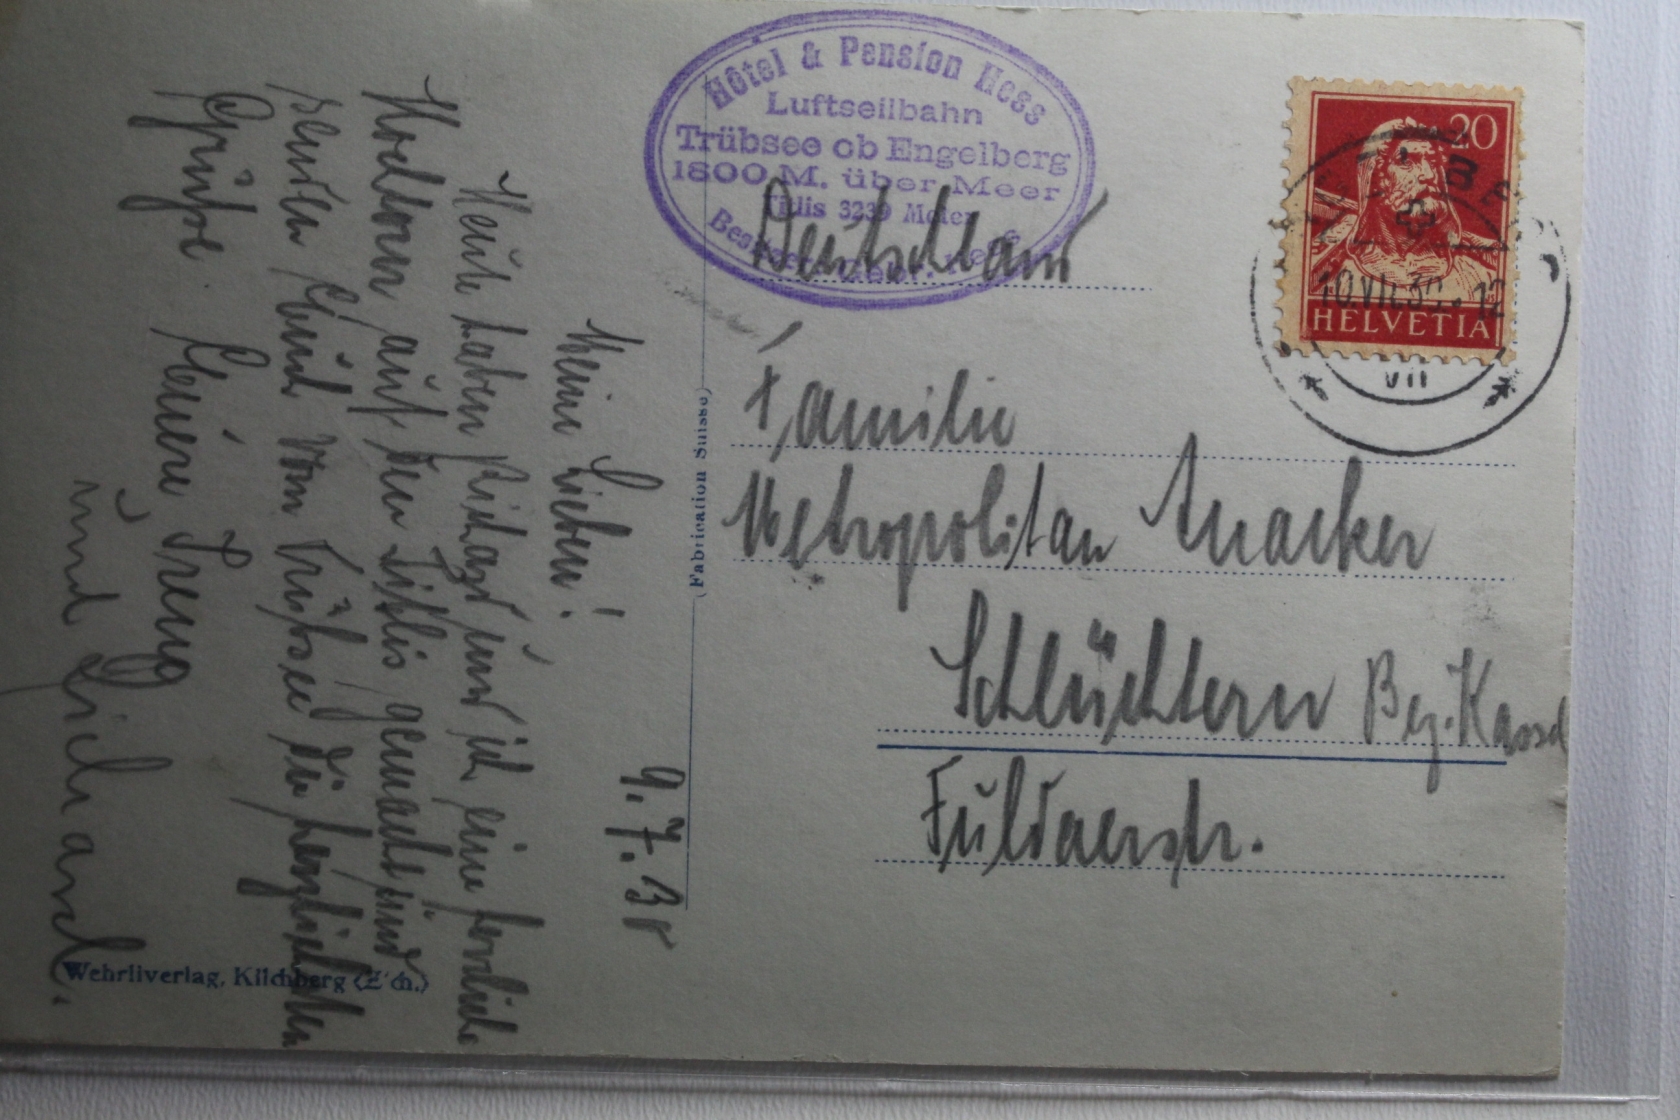 Hôtel & Pension Hess
Luftseilbahn
Trübsee ob Engelberg
1800 M. über Meer
Titlis 3239 Meter
20
HELVETIA
10.VII.30. 12
VII
Deutschland
Familie
Metropolitan
Schlüchtern Bez. Kassel
Fuldaerstr.
(Fabrication Suisse)
9. 7. 30
Meine Lieben!
Heute haben Richard und ich eine herrliche
auf den Titlis gemacht und
senden Euch vom Trübsee die herzlichsten
Grüße. Euere
und Richard.
Wehrliverlag, Kilchberg (Z'ch.)